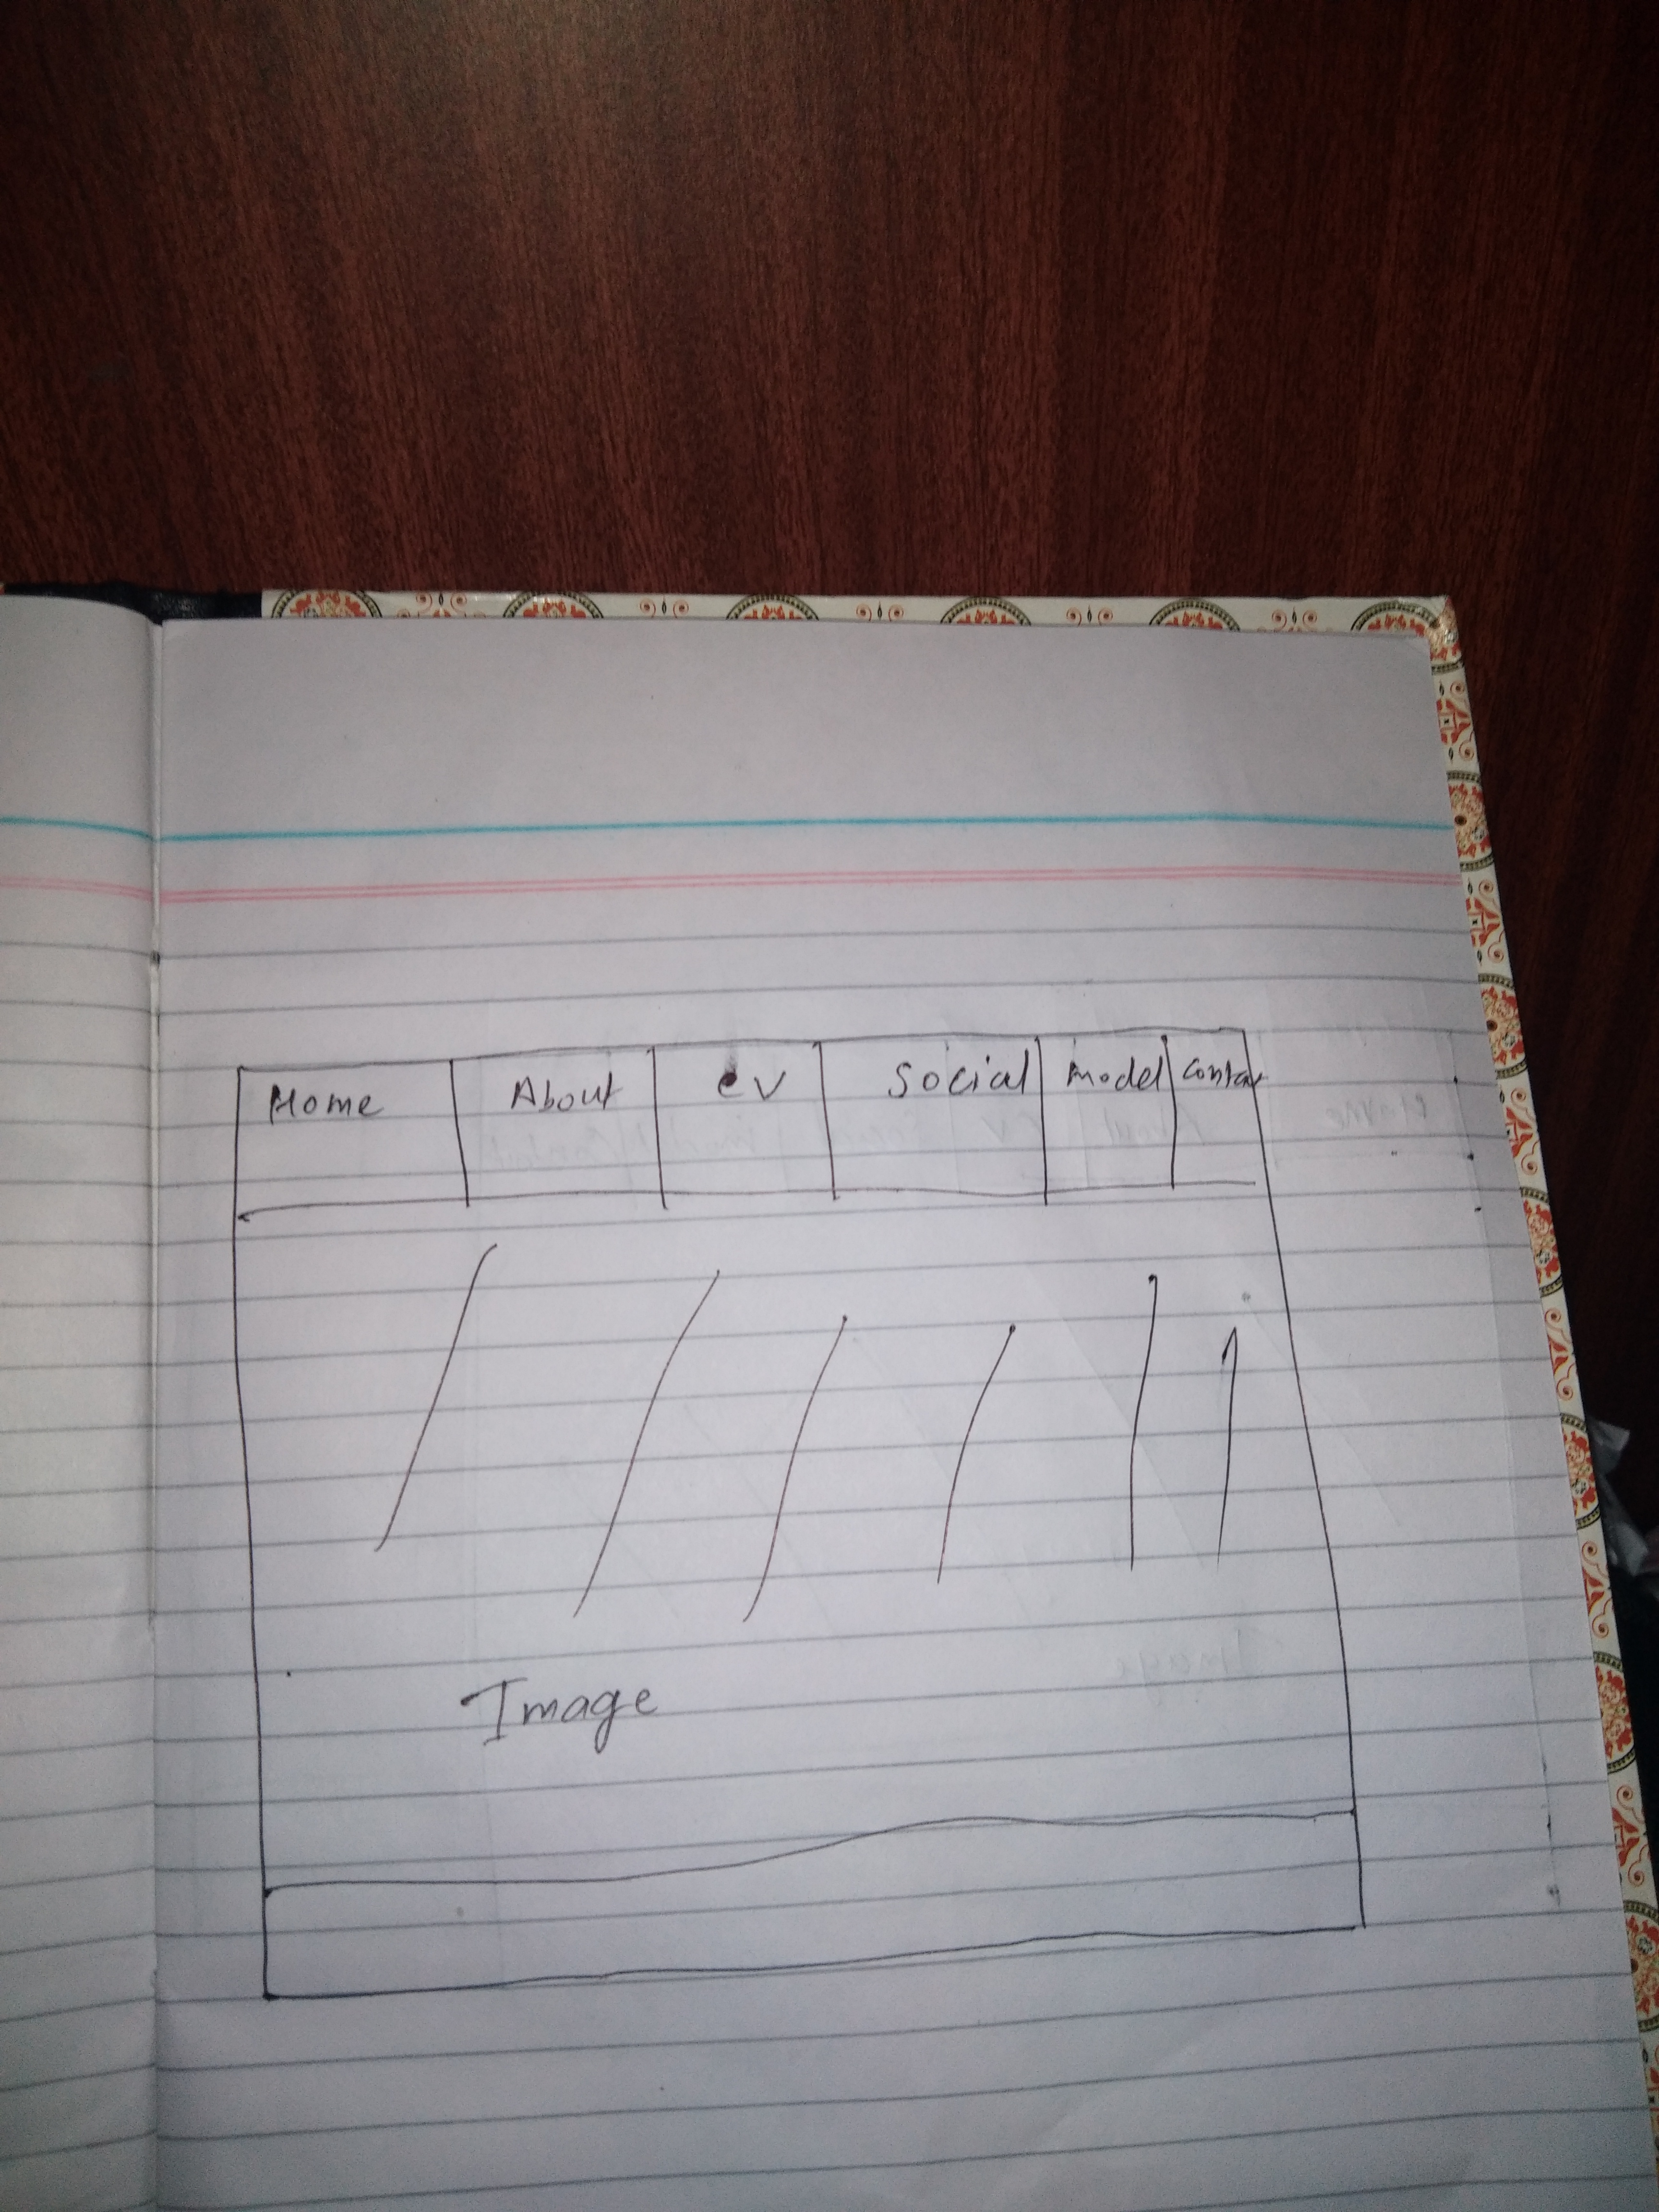 Home About CV Social Model Conta
Image